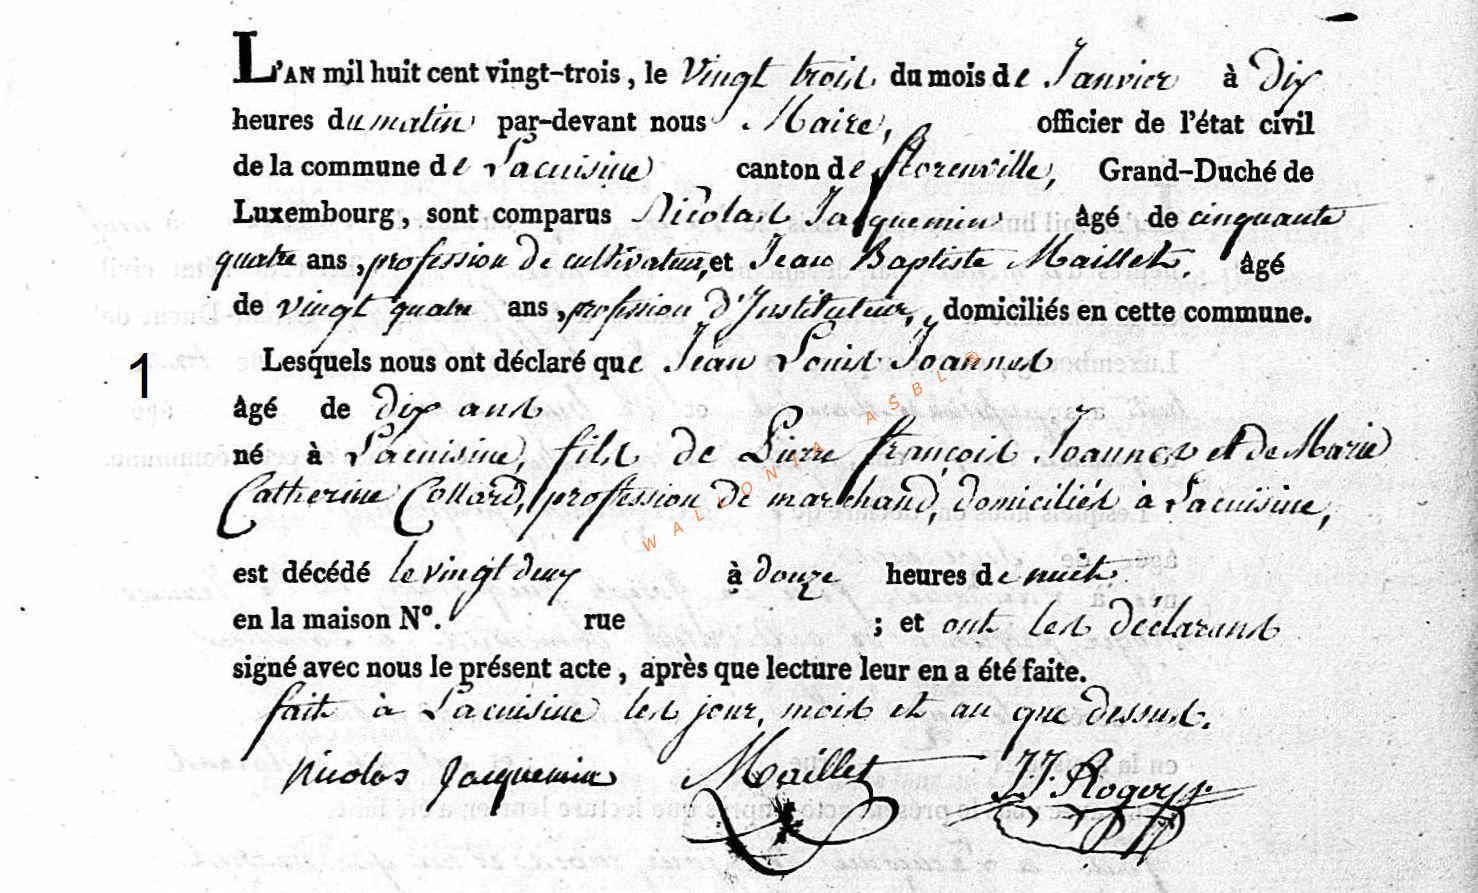 L'AN mil huit cent vingt-trois, le Vingt trois du mois de Janvier à dix
heures du matin par-devant nous Maire, officier de l'état civil
de la commune de Lacuisine canton de florenville, Grand-Duché de
Luxembourg, sont comparus Nicolas Jacquemin âgé de cinquante
quatre ans, profession de cultivateur, et Jean Baptiste Maillet, âgé
de vingt quatre ans, profession d'Instituteur, domiciliés en cette commune.
Lesquels nous ont déclaré que Jean Louis Joannes
1
âgé de dix ans
né à Lacuisine, fils de Pierre françois Joannes et de Marie
Catherine Collard, profession de marchand, domiciliés à Lacuisine,
WALLONIA ASBL ®
est décédé le vingt deux à douze heures de nuit,
en la maison N°. rue ; et ont les déclarans
signé avec nous le présent acte, après que lecture leur en a été faite.
fait à Lacuisine les jour, mois et an que dessus.
Nicolas Jacquemin Maillet J. J. Rogery